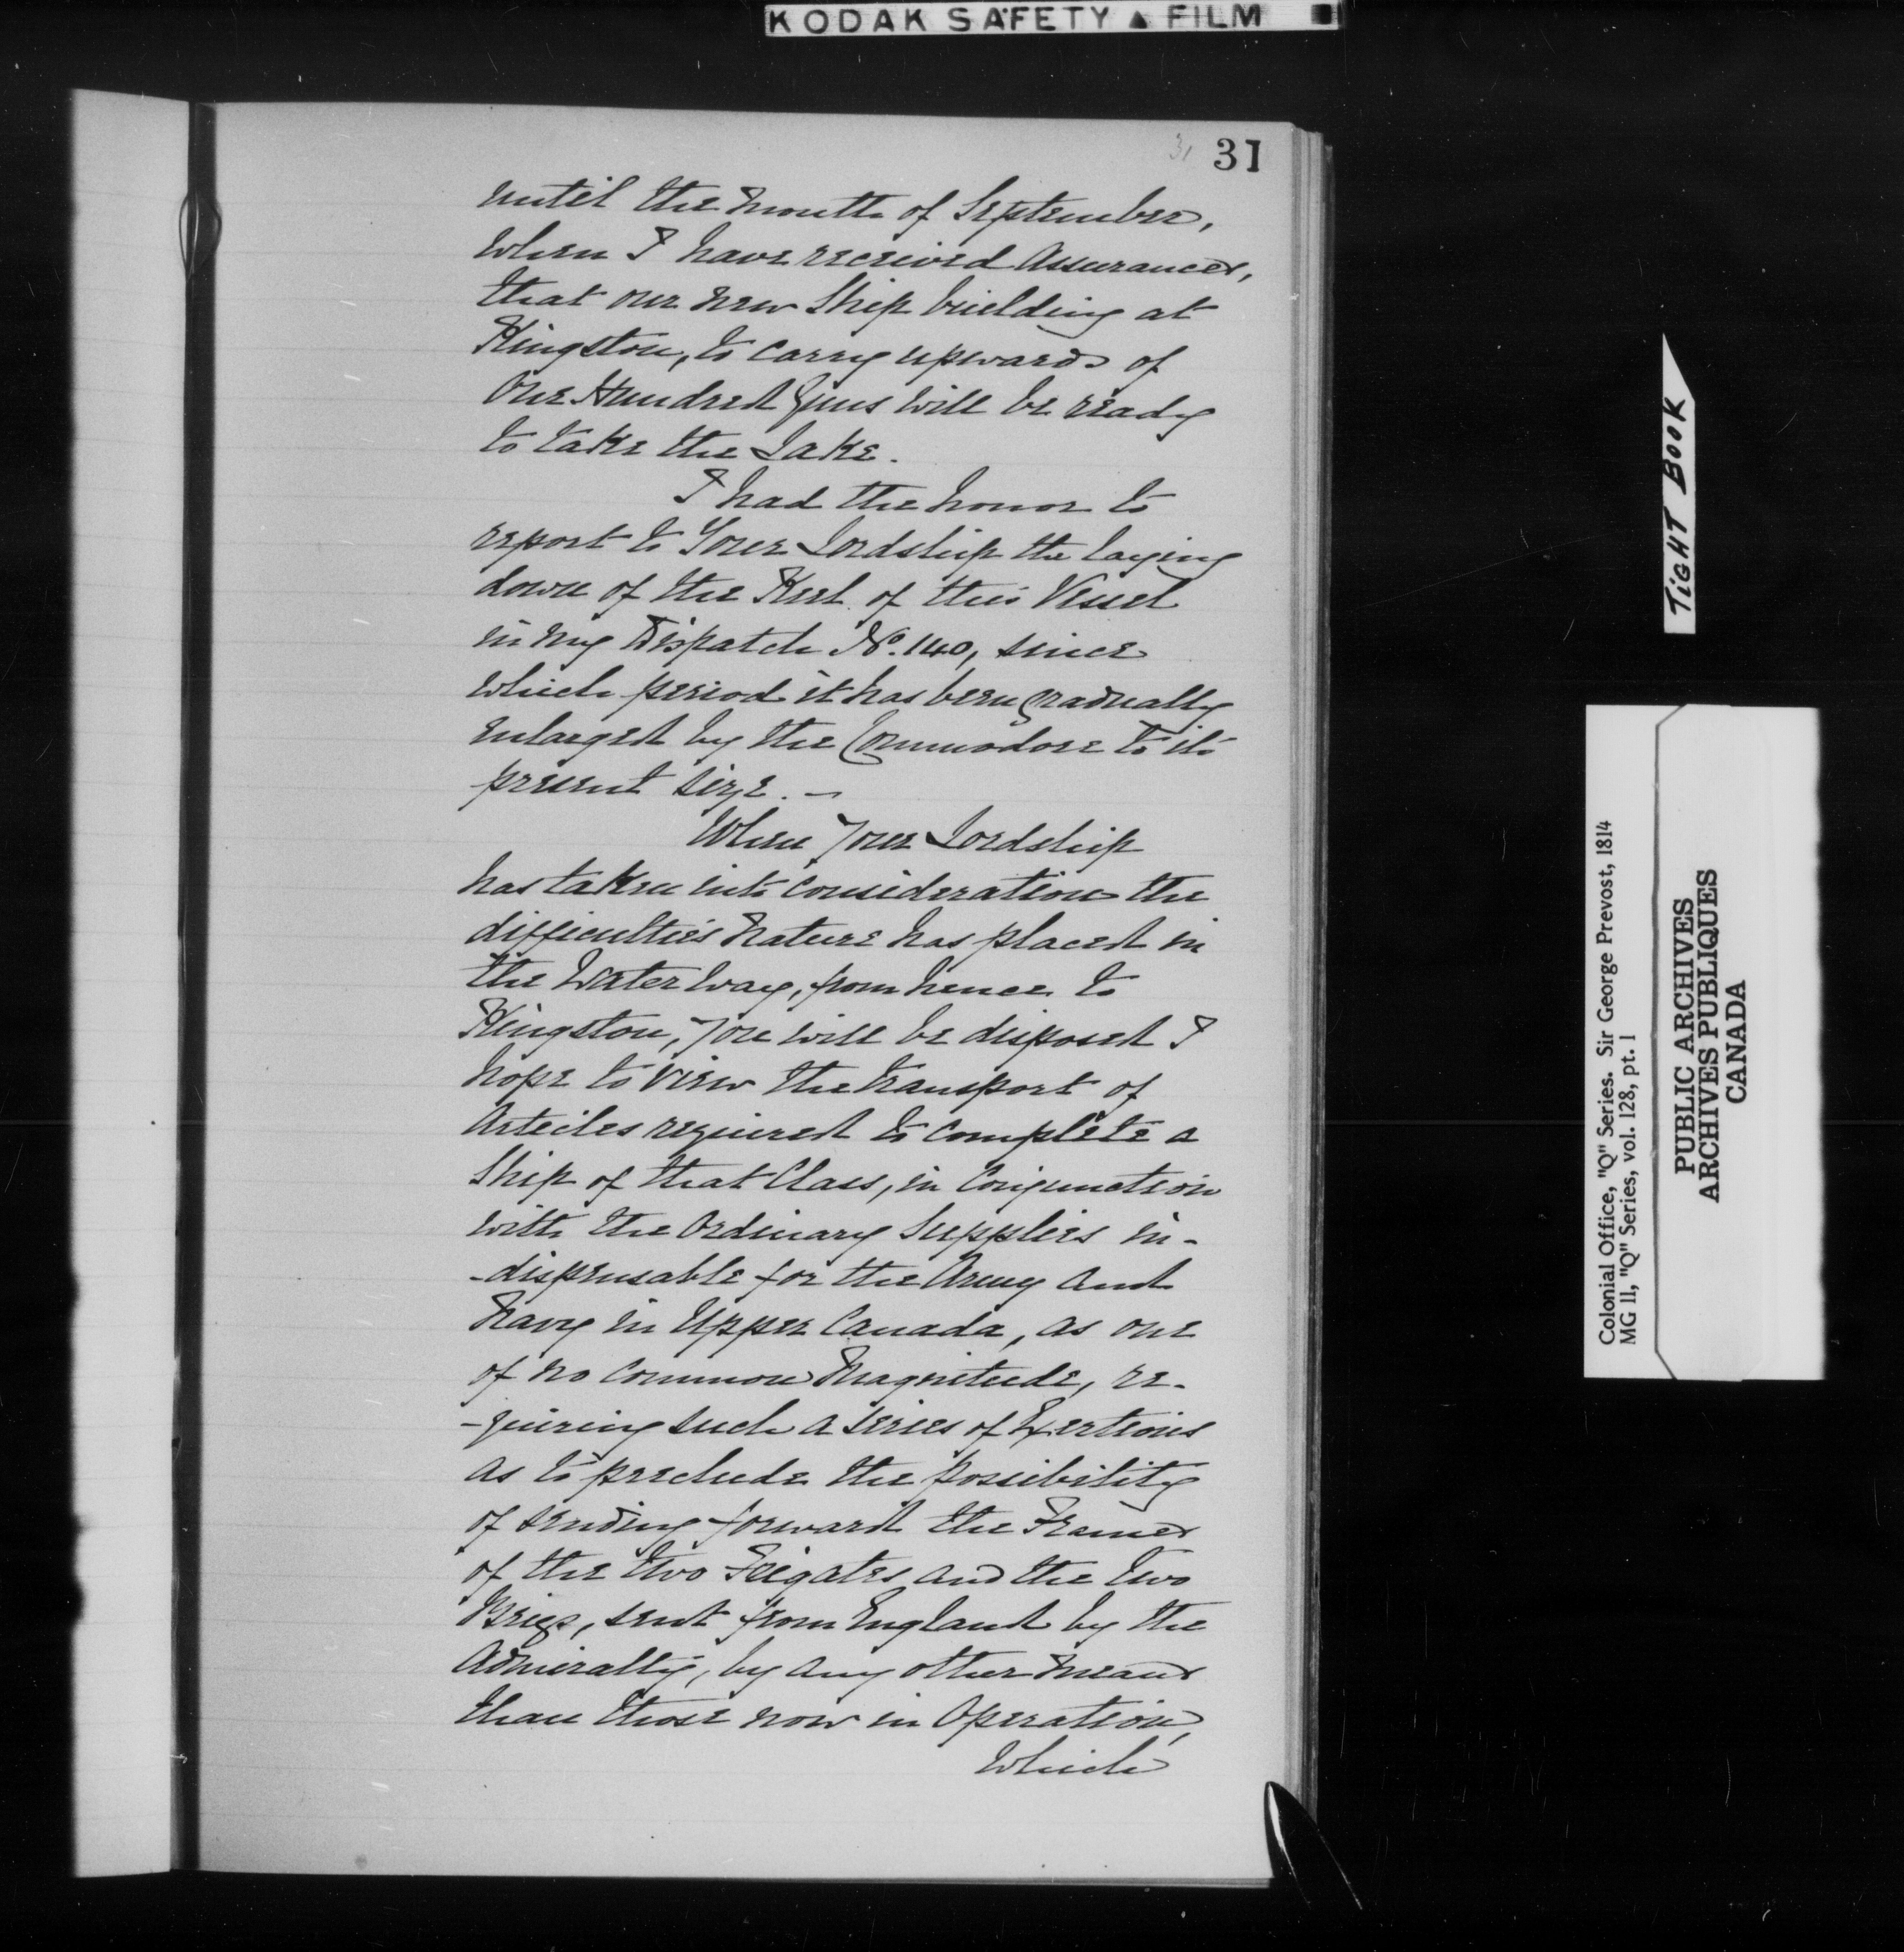 KODAK SAFETY ▲ FILM
31 31
until the month of September,
when I have received Assurances,
that our new Ship building at
Kingston, to carry upwards of
One Hundred Guns will be ready
to take the Lake.
I had the honor to
report to Your Lordship the laying
down of the Keel of this Vessel
in my Dispatch No. 140, since
which period it has been gradually
enlarged by the Commodore to its
present size. —
When Your Lordship
has taken into consideration the
difficulties Nature has placed in
the Water Way, from hence to
Kingston, You will be disposed I
hope to view the transport of
Articles required to complete a
Ship of that Class, in Conjunction
with the Ordinary Supplies in-
-dispensable for the Army and
Navy in Upper Canada, as one
of no common Magnitude, re-
-quiring such a series of Exertions
as to preclude the possibility
of sending forward the Frames
of the two Frigates and the two
Brigs, sent from England by the
Admiralty, by any other means
than those now in Operation,
Which
TIGHT BOOK
Colonial Office, "Q" Series. Sir George Prevost, 1814
MG 11, "Q" Series, vol. 128, pt. 1
PUBLIC ARCHIVES
ARCHIVES PUBLIQUES
CANADA